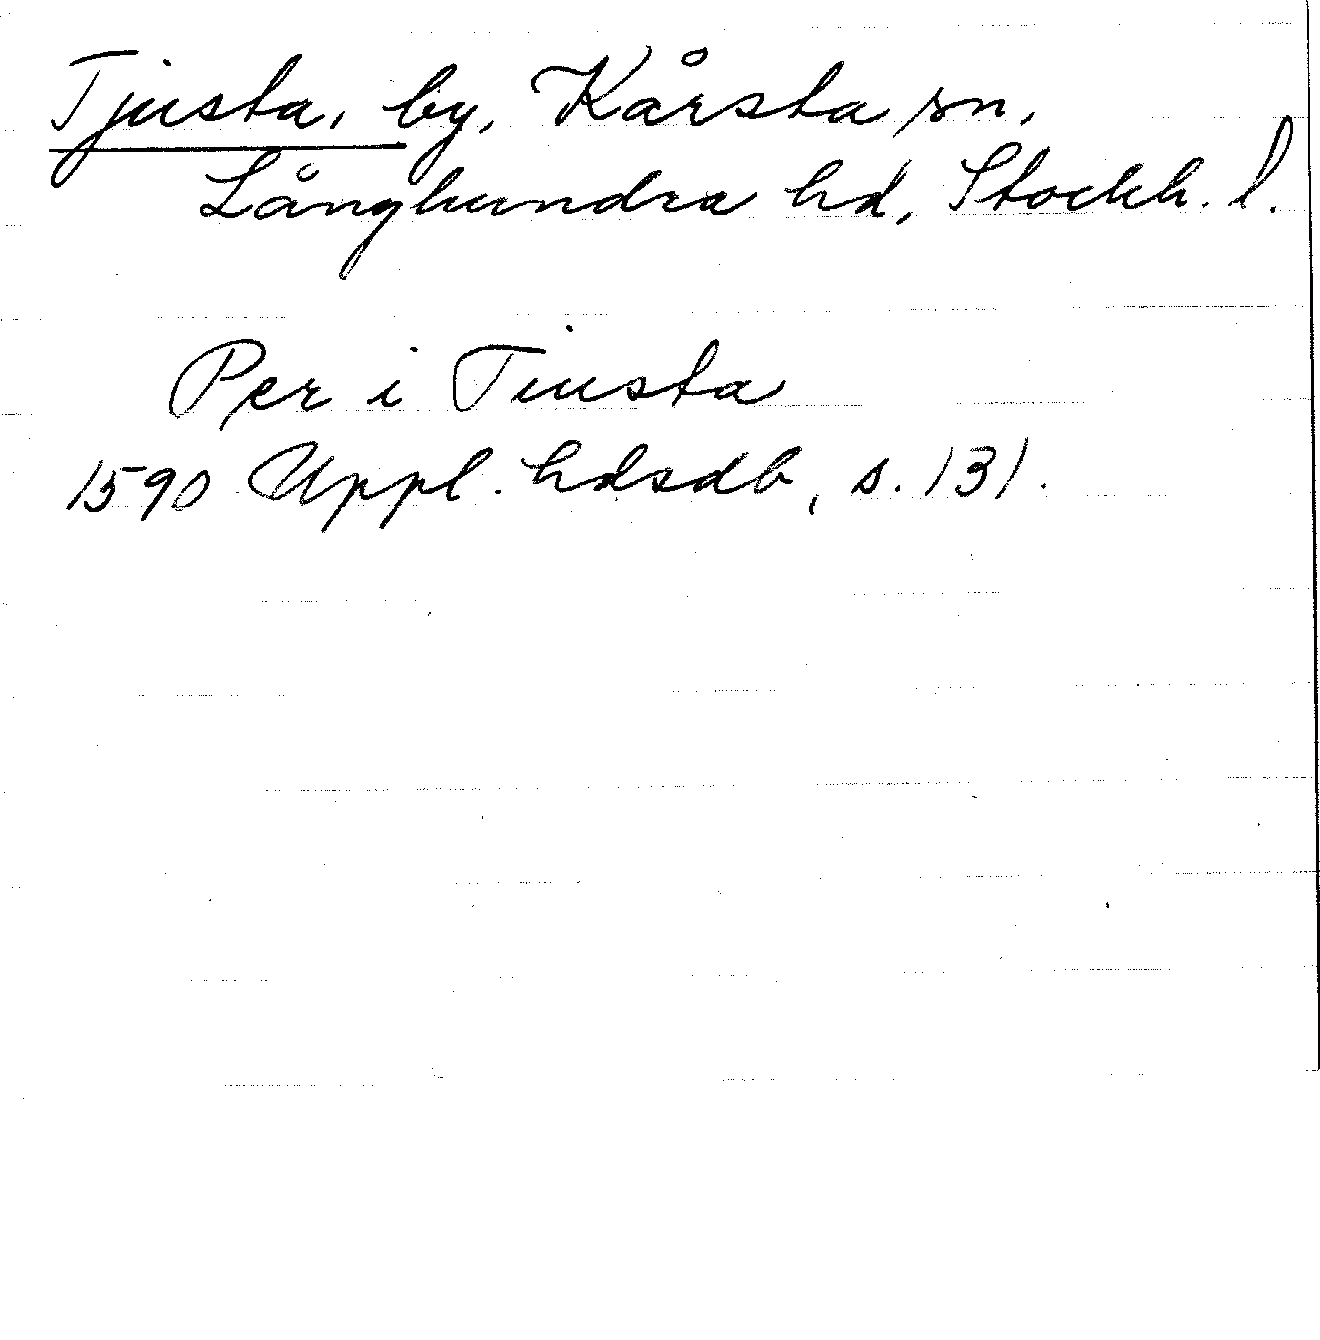 Tjusta, by, Kårsta sn,
Långhundra hd, Stockh. l.
Per i Tiusta
1590 Uppl. hdsdb, s. 131.